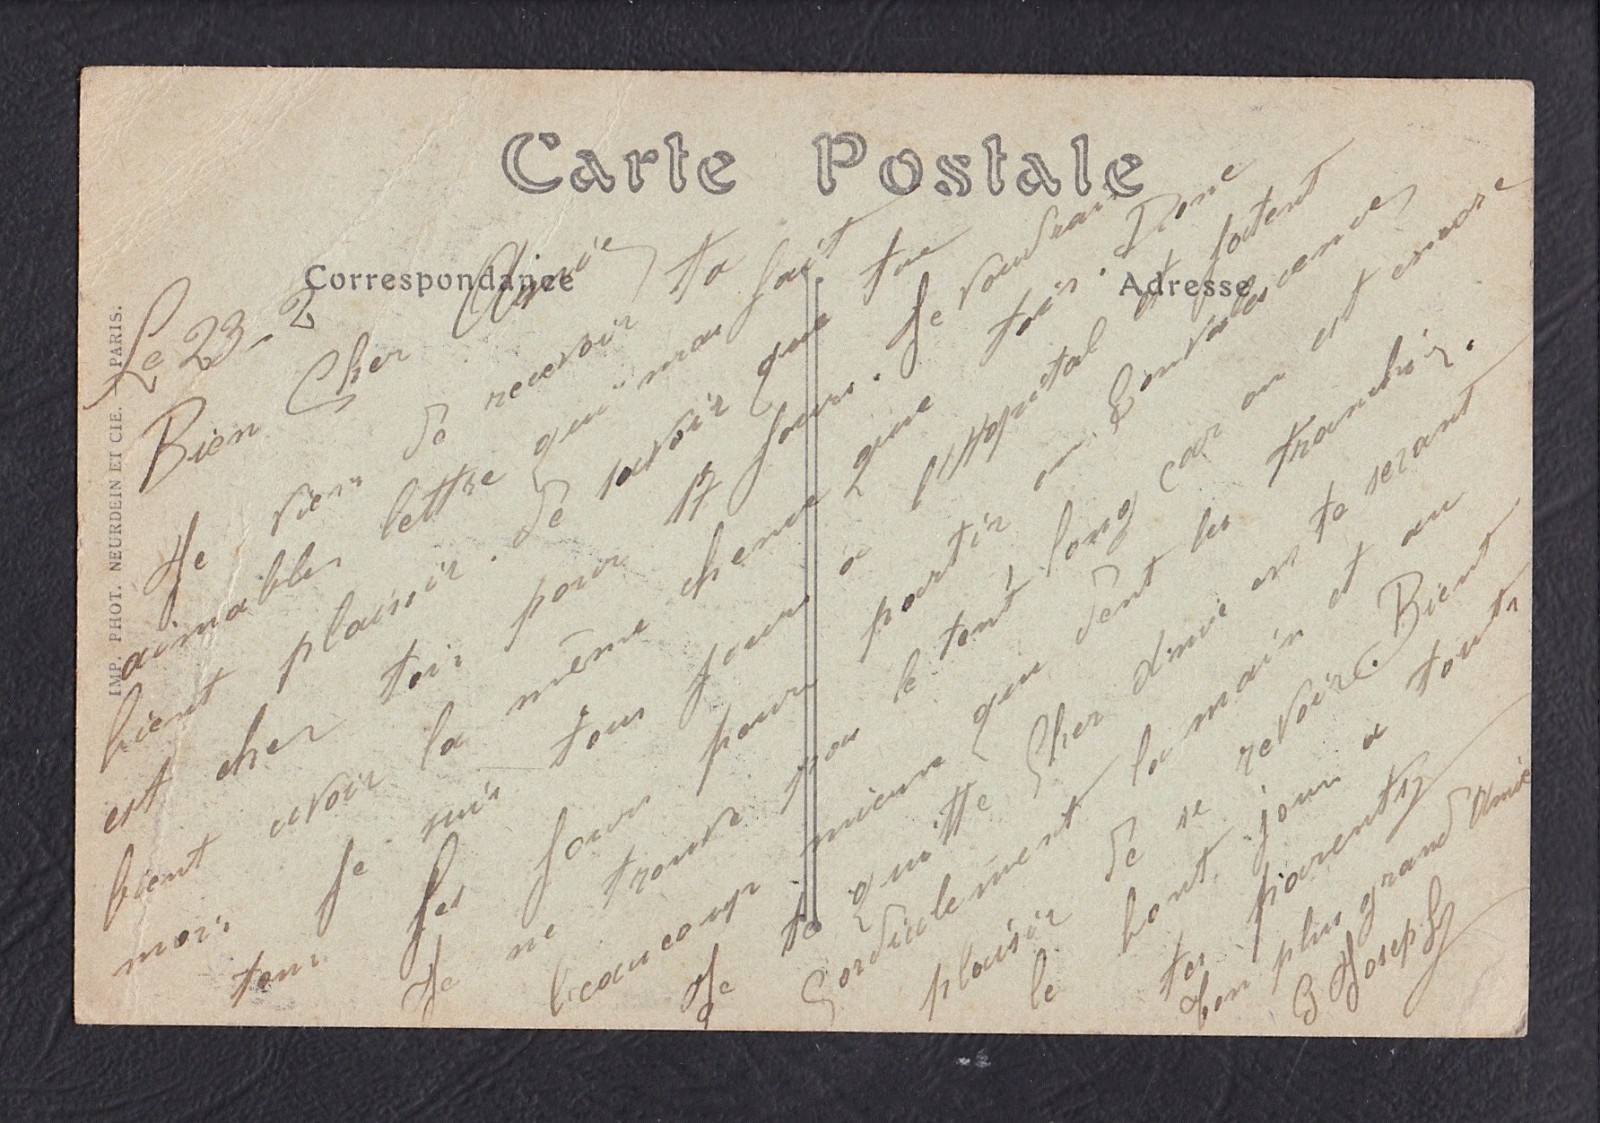 Carte Postale
Correspondance
Adresse
IMP. PHOT. NEURDEIN ET CIE. — PARIS.
Le 23-2
Bien Cher Amie
Je vien de recevoir ta
aimables lettre qui mas fait
bient plaisir. de savoir que tue
est cher toi pour 17 jours. Je voudrai
bient avoir la même chence que tois. Donc
mois je suis tous jours a l'Hopital et
tous les jours pour partir en Convalescence
Je ne trouve pas le tent long car on est encore
beaucoup mieux que dent les tranchéz.
Je te quitte Cher Amie en te serant
Cordialement la main et au
plaisir de se revoire. Bient
le bont jour a touts
tes parents
Ton plus grand Amie
Joseph